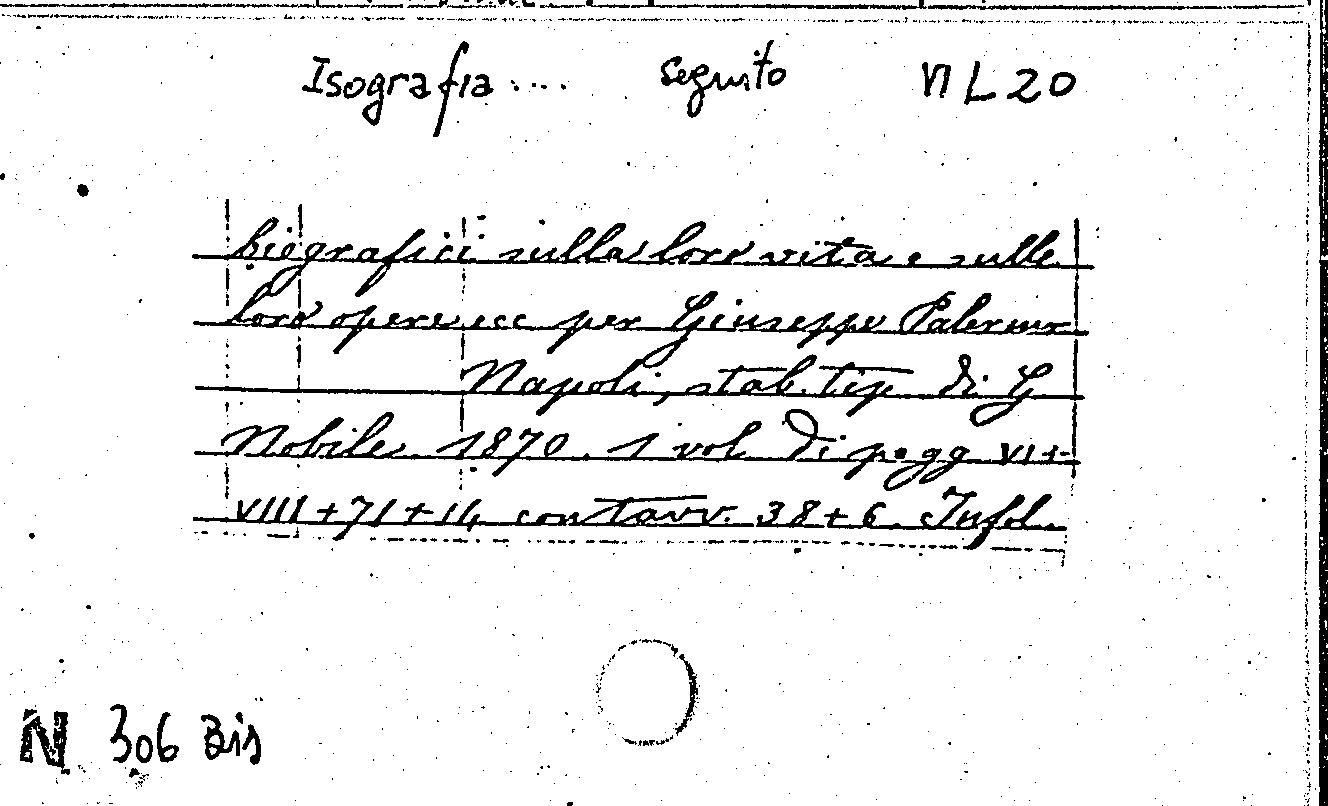 Isografia.... seguito VI L 20
biografici sulla loro vita e sulle
loro opere ecc per Giuseppe Palermo
Napoli, stab. tip. di G
Nobile 1870. 1 vol. di pagg VI+
VIII+71+14 con tavv. 38+6. In fol.
N 306 Bis